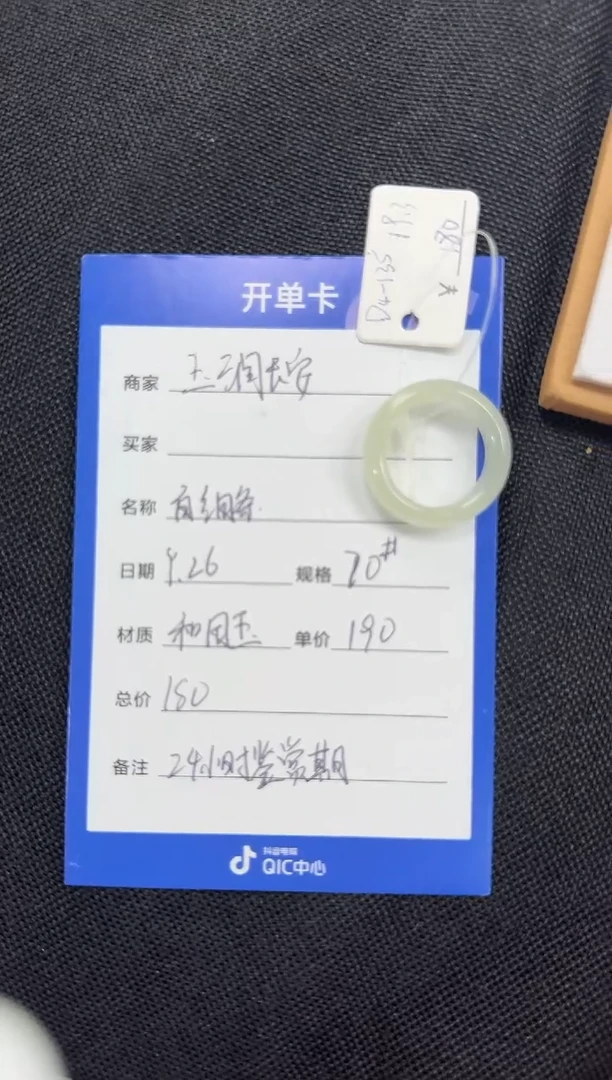 开单卡
商家 玉润长安
买家
名称
日期 9.26 规格 20#
材质 和田玉 单价 190
总价 180
备注 24小时鉴赏期
抖音电商
QIC中心
D41-135 19.3